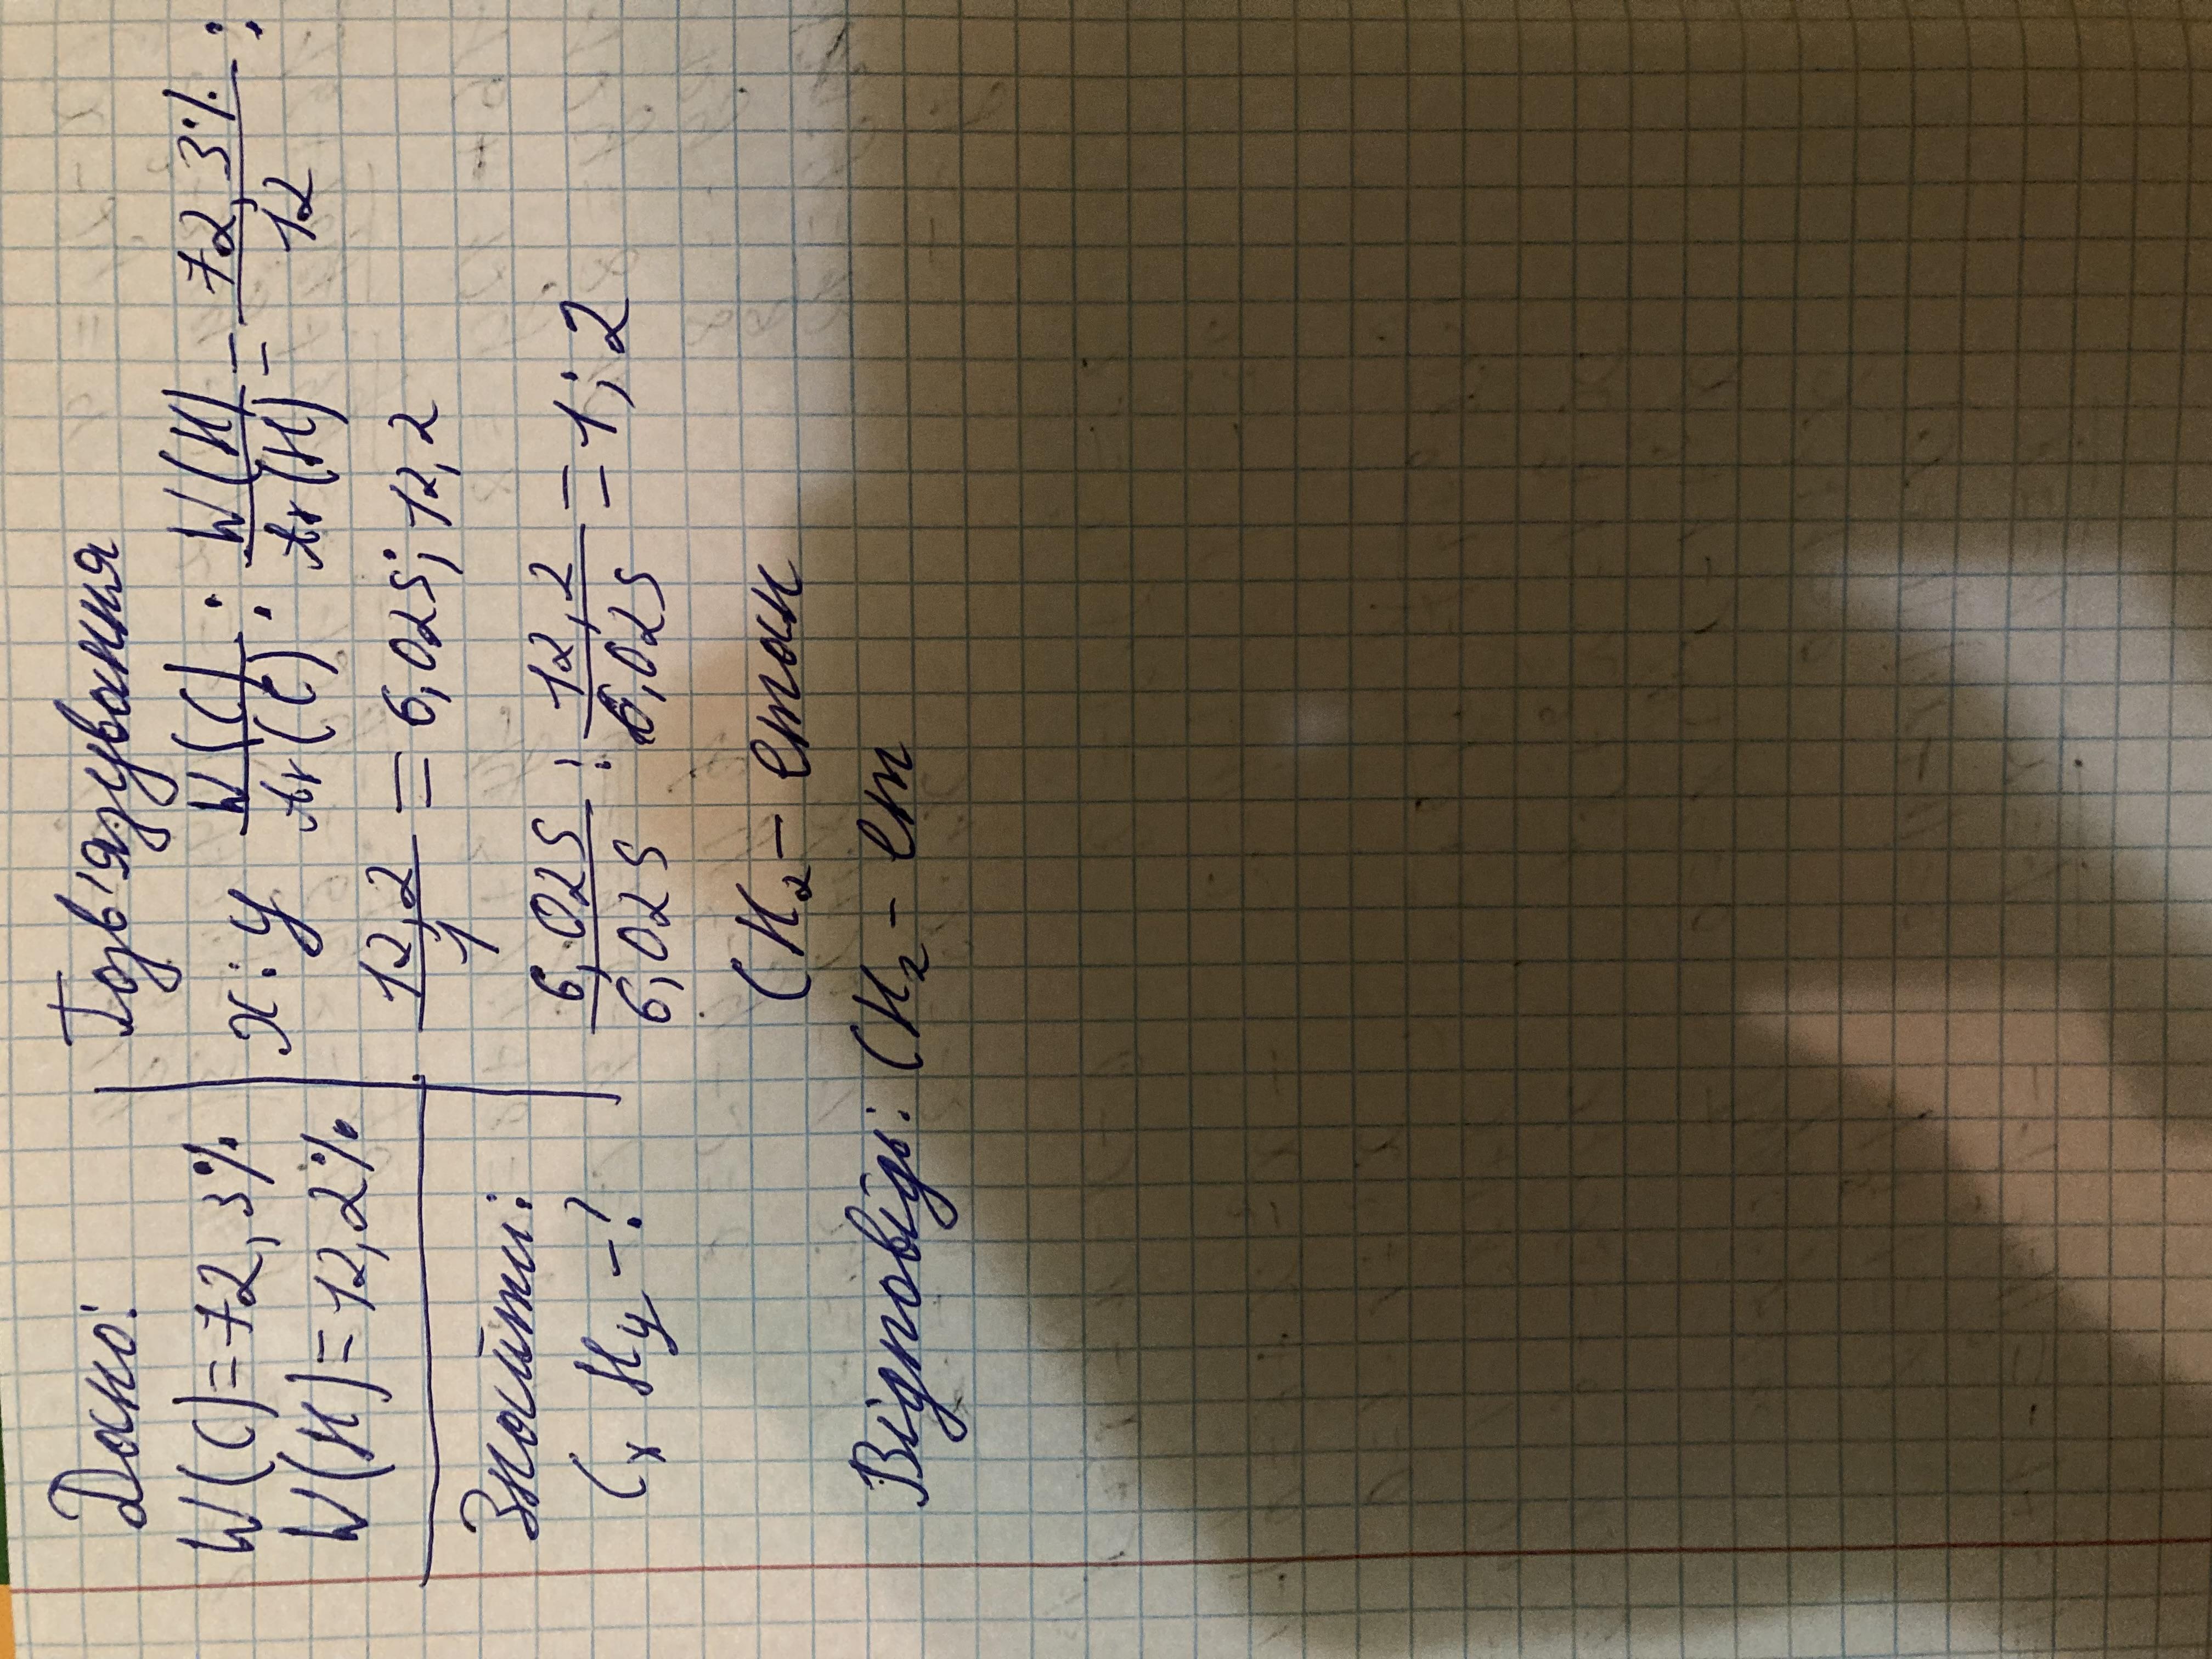 Дано:
W(C)=72,3%
W(H)=12,2%
Знайти:
CxHy-?
Розв'язування
x:y W(C)/Ar(C) : W(H)/Ar(H) = 72,3%/12 :
12,2/1 = 6,025; 12,2
6,025/6,025 : 12,2/6,025 = 1; 2
CH₂ - етан
Відповідь: CH₂ - ет